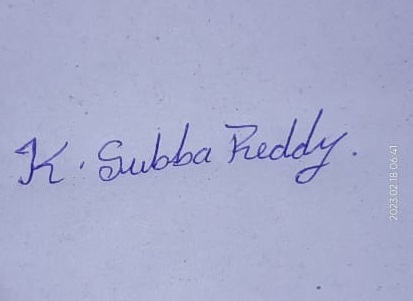 K. Subba Reddy.
2023.02.18 06:41